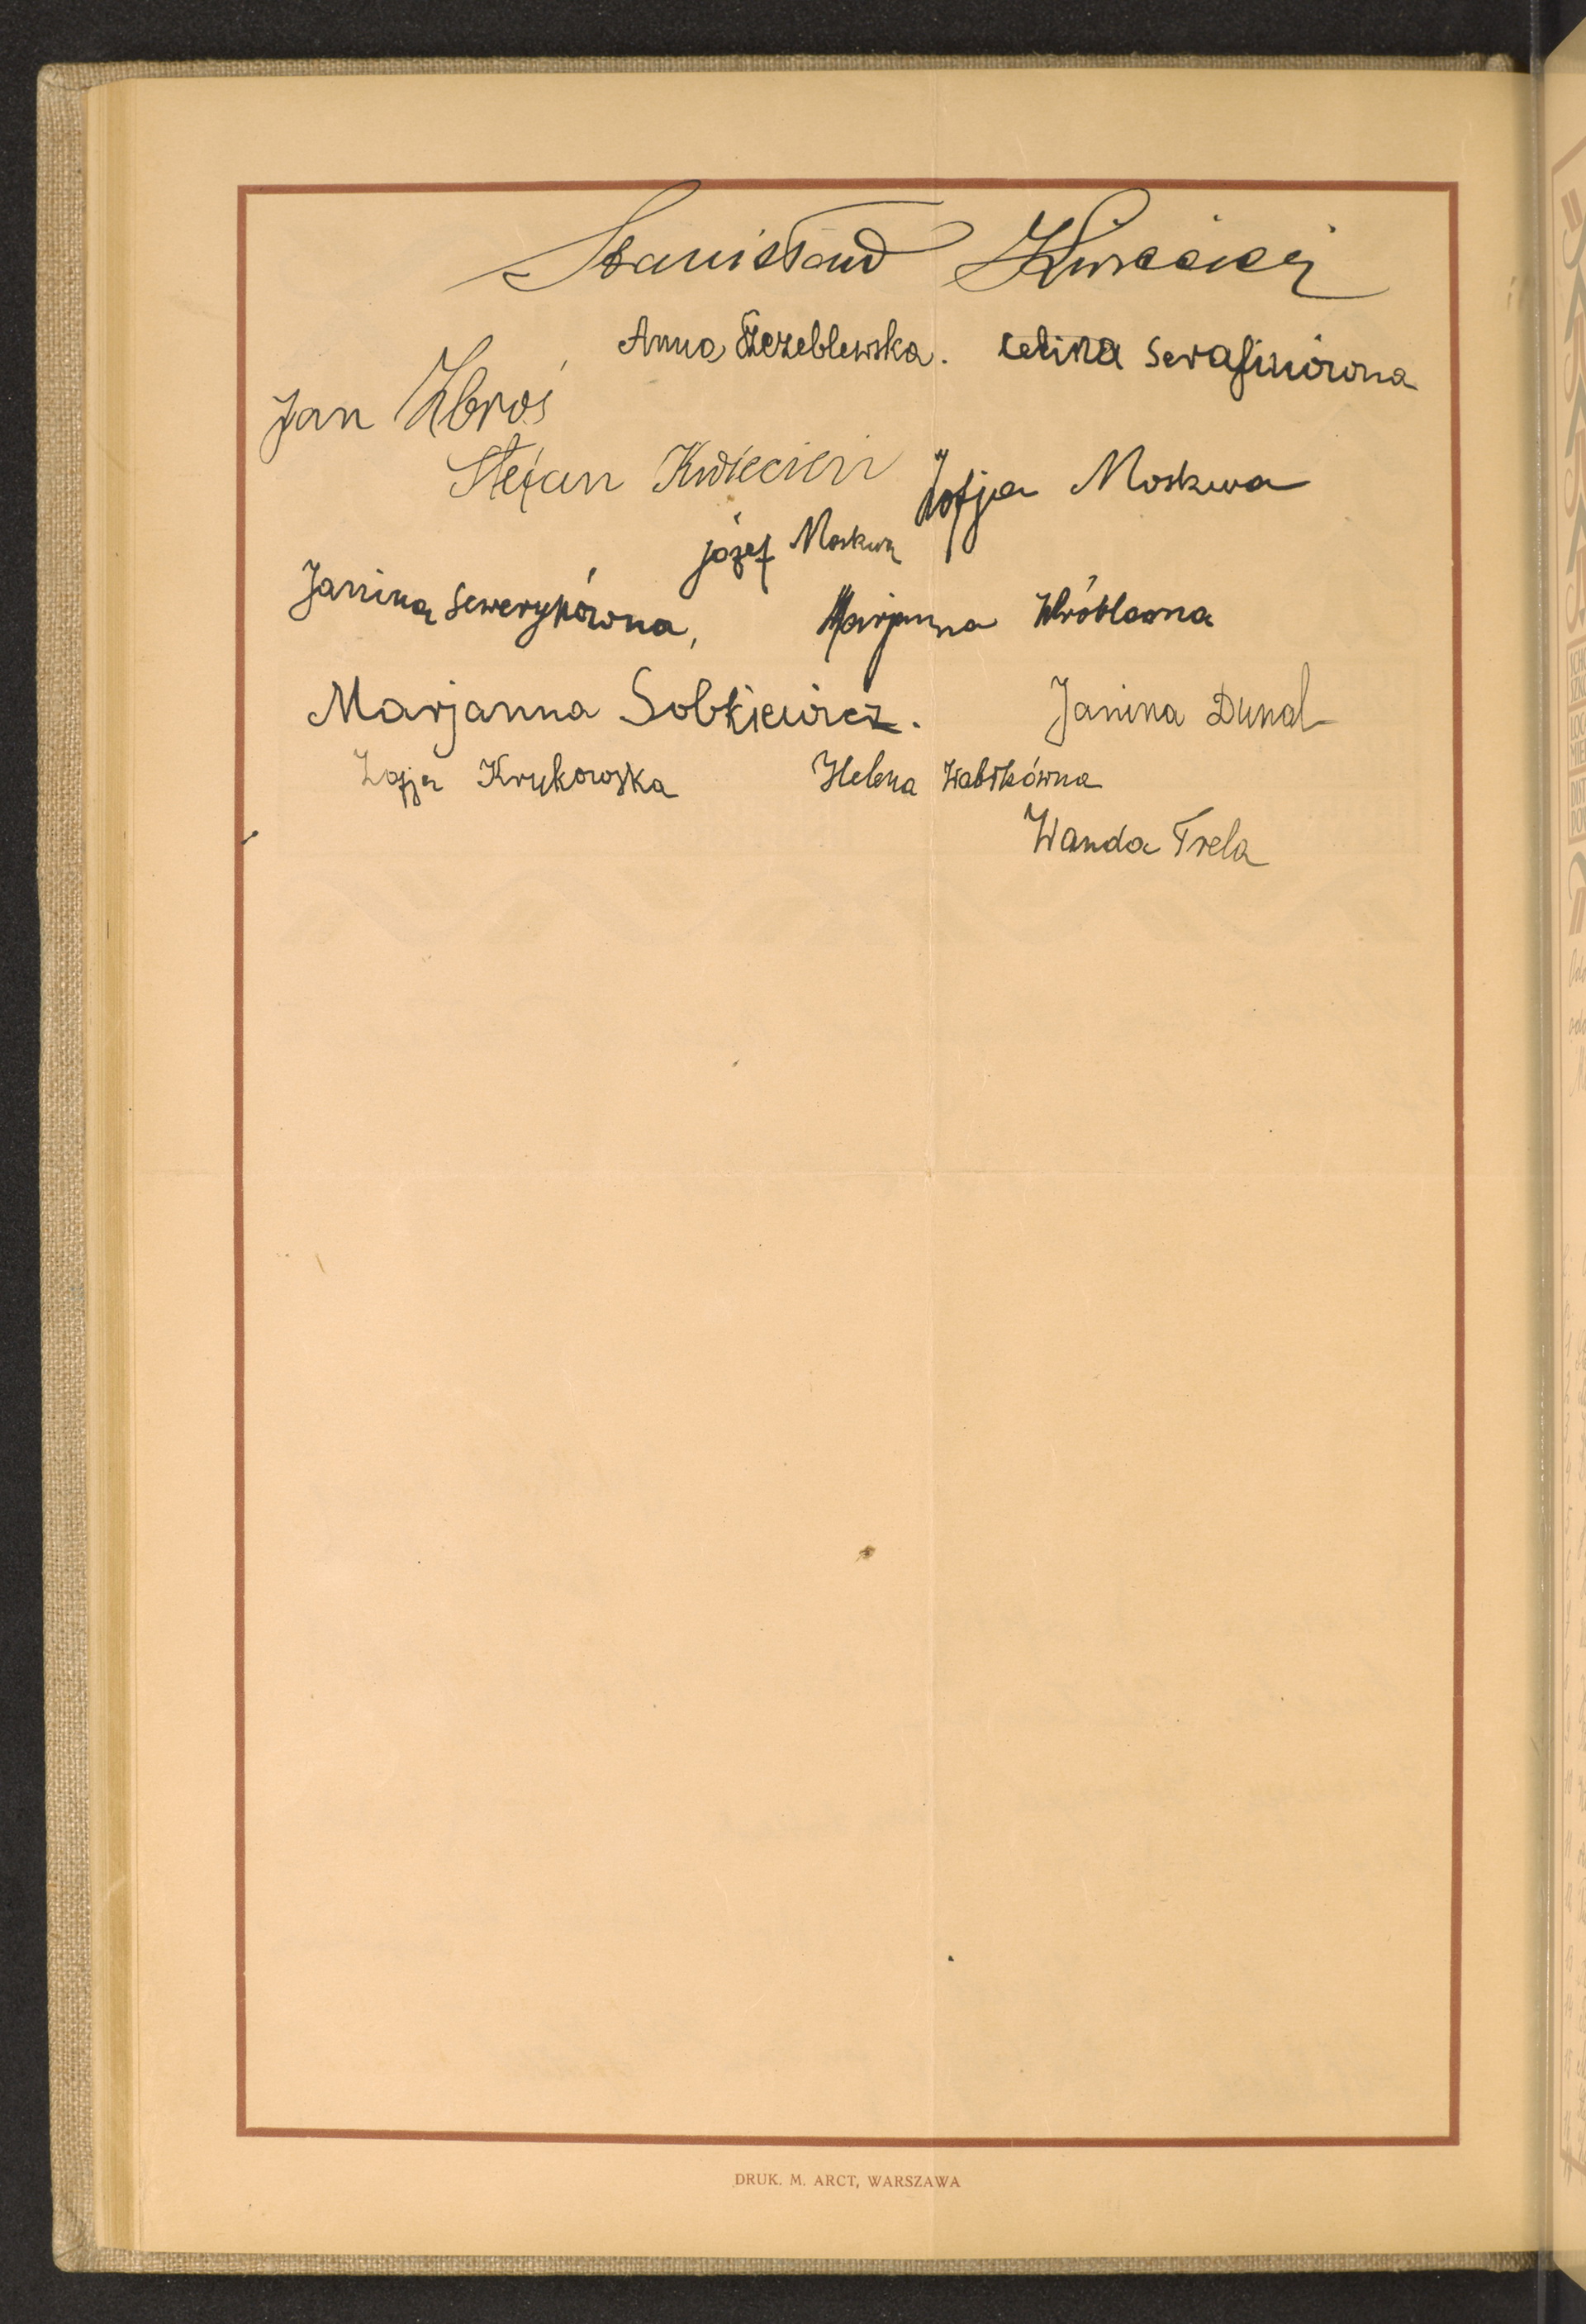 Stanisław Kwiecień
Anna Szczeblewska. Celina Serafinówna
Jan Zbroś
Stefan Kwiecień Zofja Moskwa
Józef Moskwa
Janina Sewerynówna, Marjanna Wróblowna
Marjanna Sobkiewicz. Janina Dunal
Zofja Krykowska Helena Wabikówna
Wanda Trela
DRUK. M. ARCT, WARSZAWA